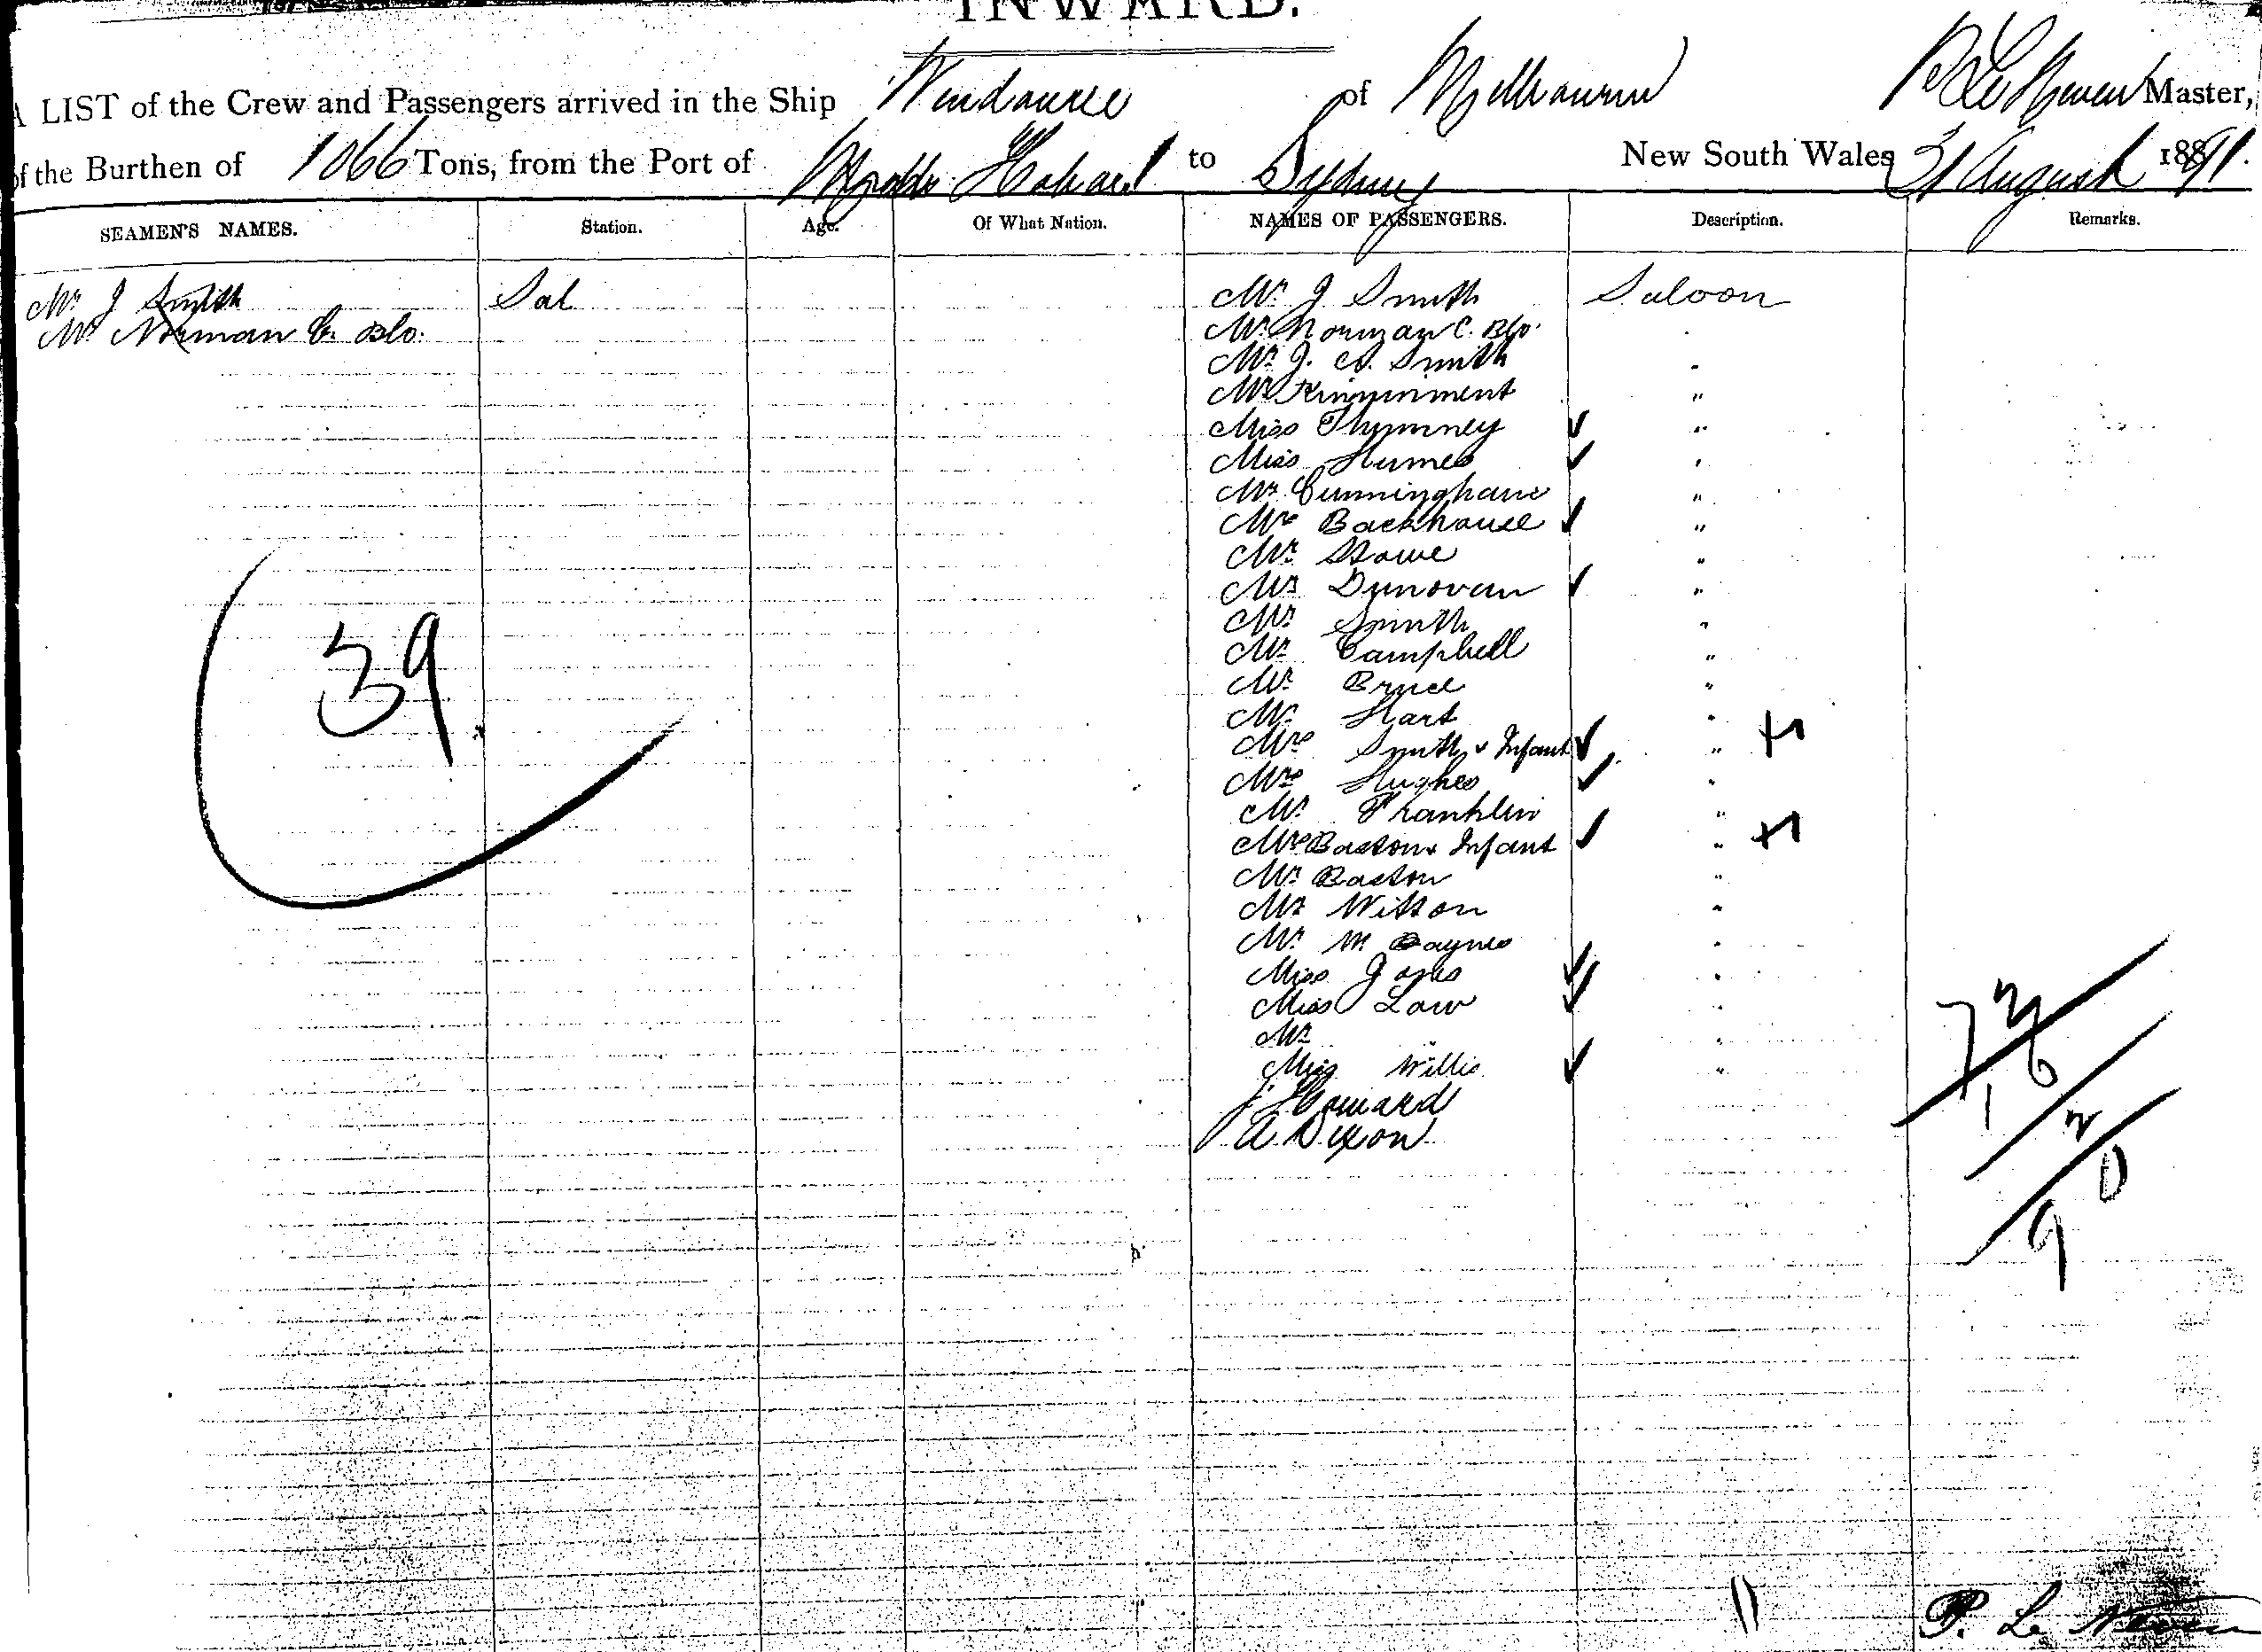 INWARD.
A LIST of the Crew and Passengers arrived in the Ship Windarra of Melbourne Master,
of the Burthen of 1066 Tons, from the Port of Hobart to Sydney New South Wales 31 August 1891.
SEAMEN'S NAMES. Station. Age. Of What Nation. NAMES OF PASSENGERS. Description. Remarks.
Mr J Smith Sal Mr J Smith Saloon
Mr Norman C. Blo. Mr Norman C. Blo. "
Mr J. A. Smith "
Mr "
Miss "
Miss Humes "
Mr Cunninghame "
Mrs Backhouse "
Mr Stowe "
Mrs Dunovan "
Mr Smith "
Mr Campbell "
Mr Bruce "
Mr Hart "
Mrs Smith & Infant " +1
Mrs Hughes "
Mr Franklin "
Mrs Baston & Infant " +1
Mr Baston "
Mr Witton "
Mr M "
Miss Jones "
Miss Law "
Mr "
Miss Willis "
J Howard
A Dixon
39
P. Le